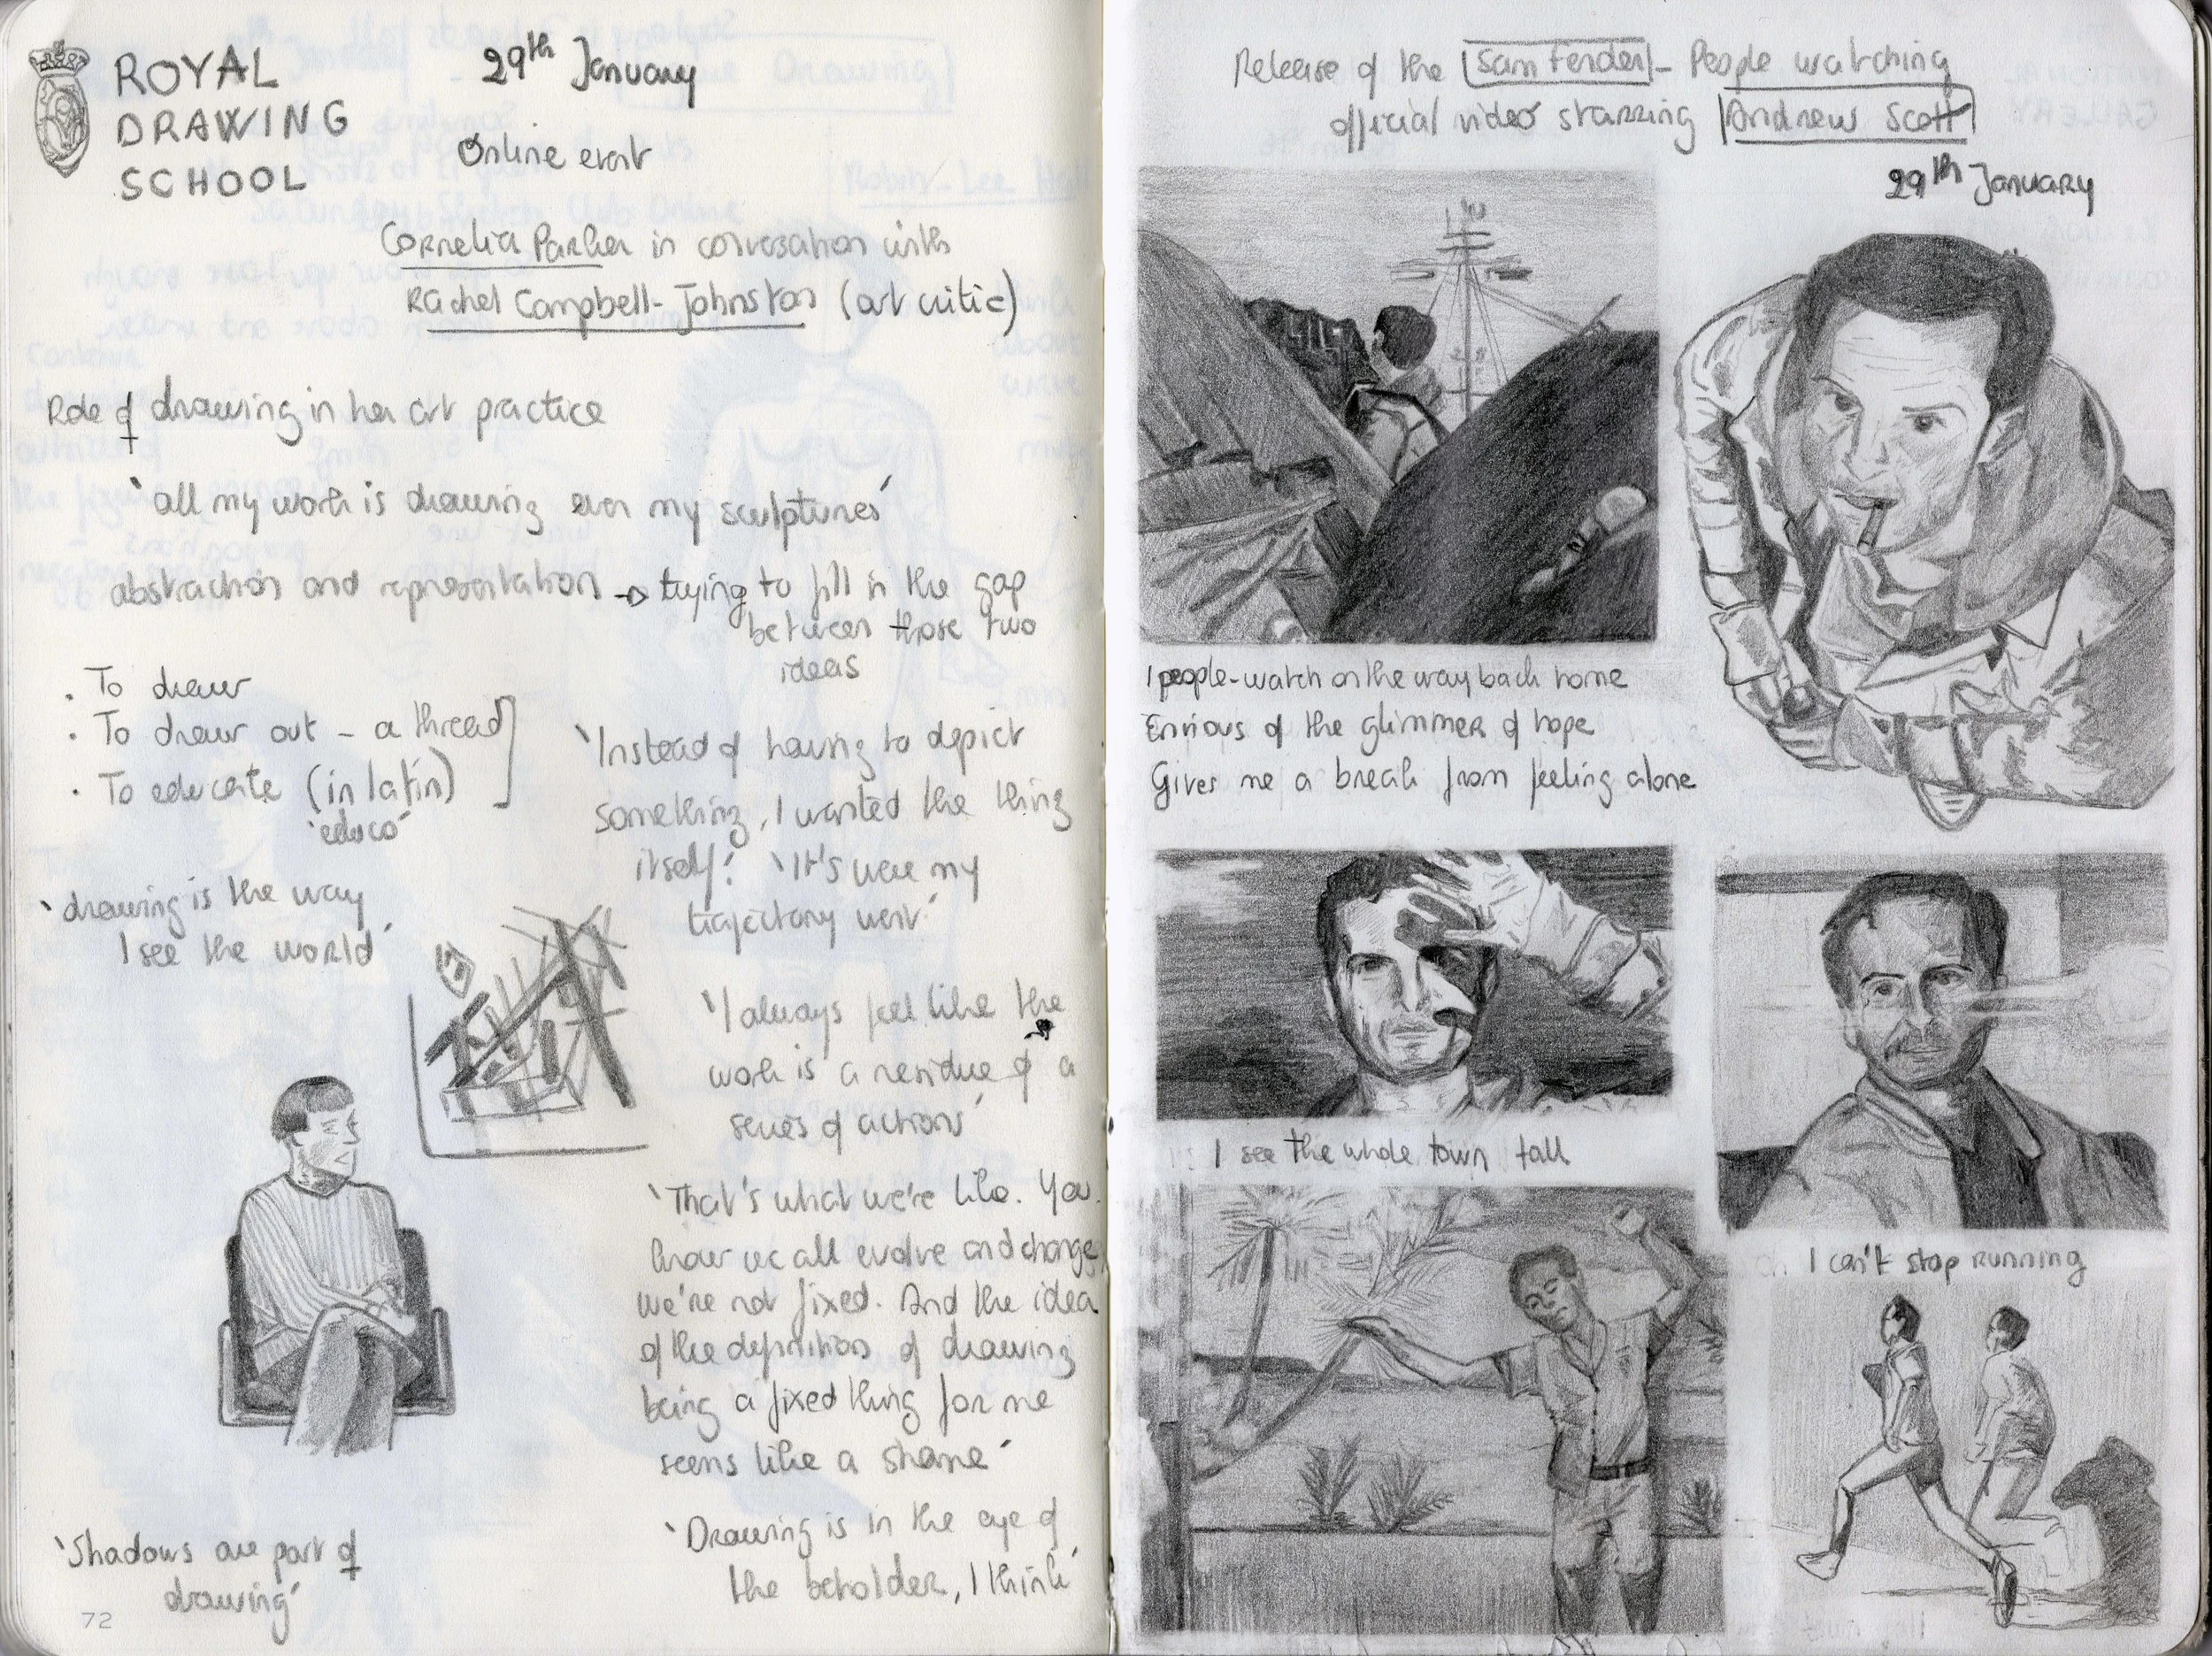 ROYAL
DRAWING
SCHOOL
29th January
Online event
Cornelia Parker in conversation with
Rachel Campbell-Johnston (art critic)
Role of drawing in her art practice
'all my work is drawing even my sculptures'
abstraction and representation → trying to fill in the gap
between those two
ideas
· To draw
· To draw out - a thread
· To educate (in latin)
'educo'
'Instead of having to depict
something, I wanted the thing
itself.' 'It's were my
trajectory went.'
'drawing is the way
I see the world'
'I always feel like the
work is a residue of a
series of actions'
'That's what we're like. You
know we all evolve and change,
we're not fixed. And the idea
of the definition of drawing
being a fixed thing for me
seems like a shame'
'Drawing is in the eye of
the beholder, I think'
'Shadows are part of
drawing'
72
Release of the Sam Fender - People watching
official video starring Andrew Scott
29th January
I people-watch on the way back home
Envious of the glimmer of hope
Gives me a break from feeling alone
I see the whole town fall
I can't stop running